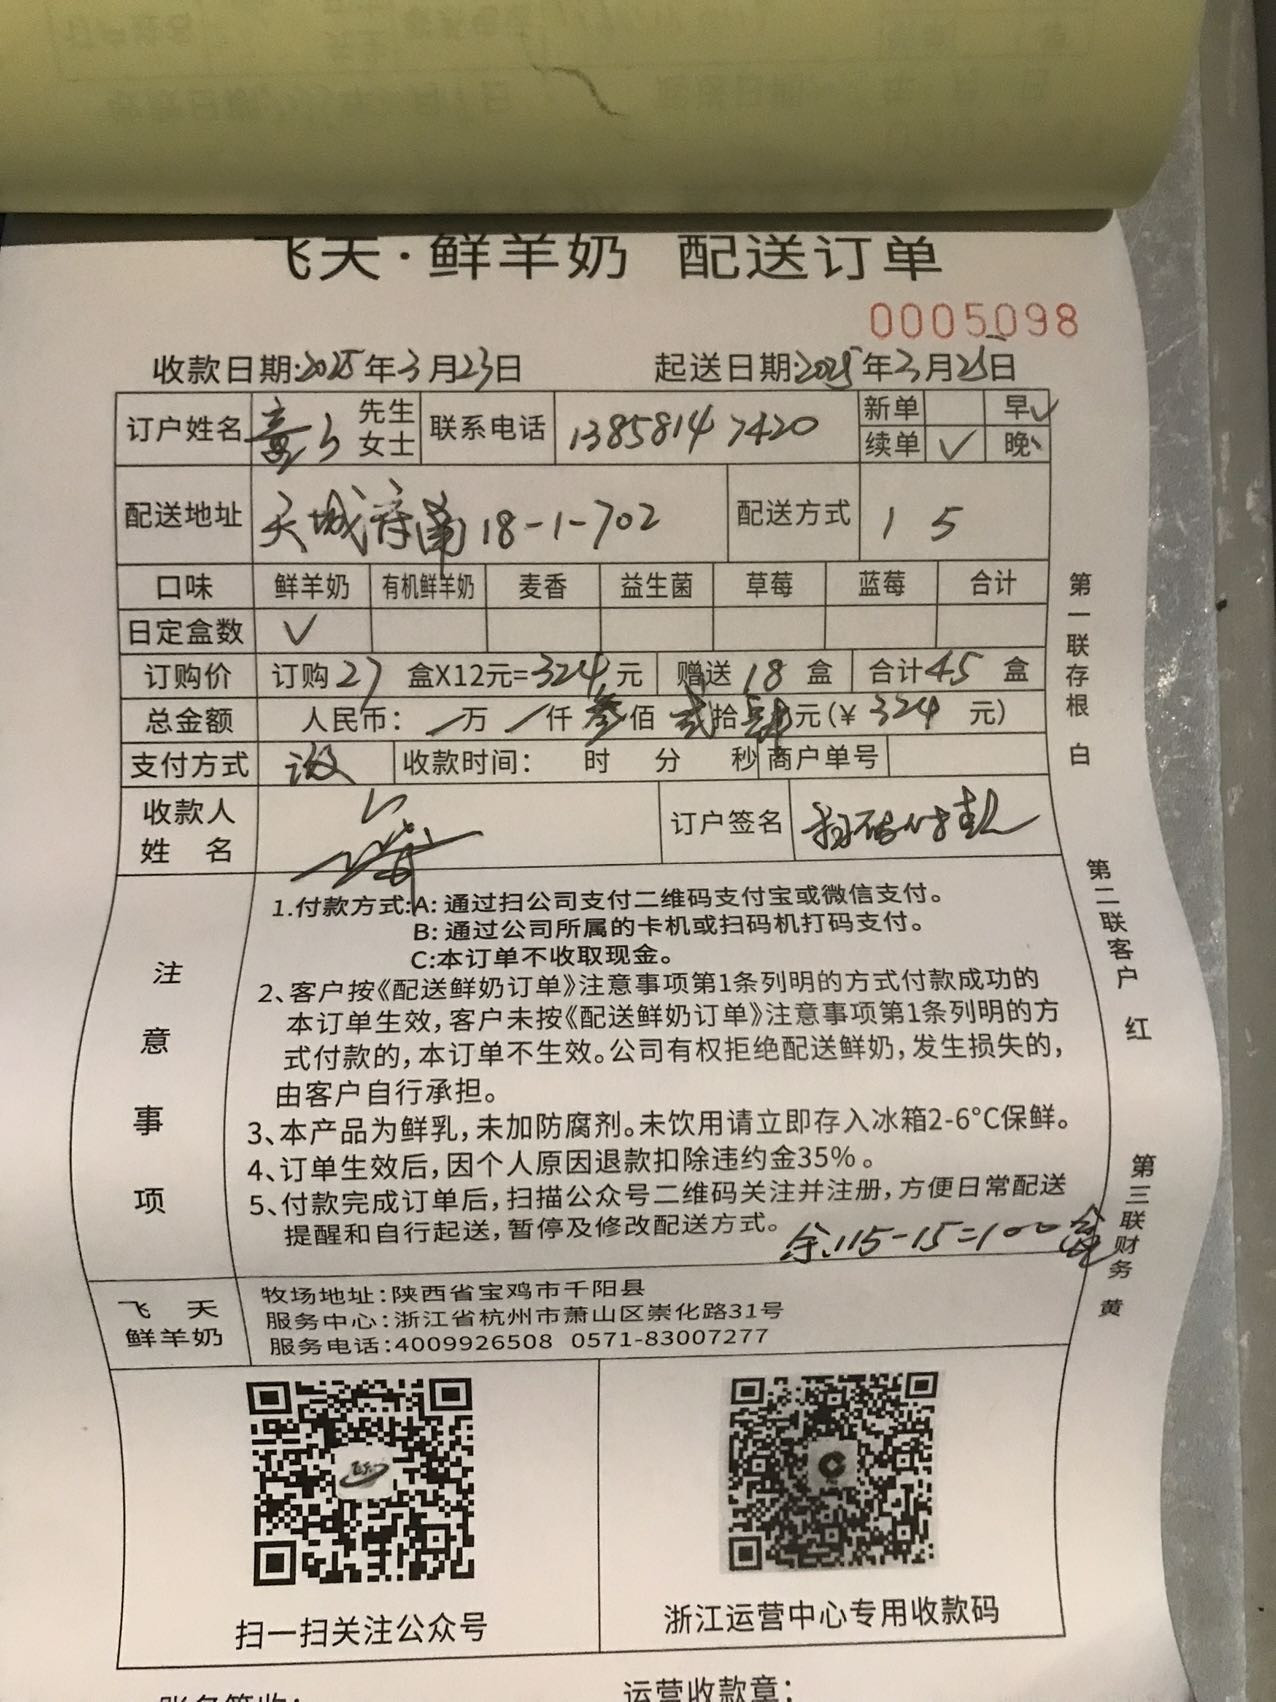 飞天·鲜羊奶 配送订单
0005098
收款日期:2025年3月23日 起送日期:2025年3月25日
订户姓名 先生 女士 联系电话 13858147420 新单 早✓
续单 ✓ 晚
配送地址 天城府南18-1-702 配送方式 1 5
口味 鲜羊奶 有机鲜羊奶 麦香 益生菌 草莓 蓝莓 合计
日定盒数 ✓
订购价 订购27盒X12元=324元 赠送18盒 合计45盒
总金额 人民币: /万/仟叁佰贰拾肆元(¥324元)
支付方式 收款时间: 时 分 秒 商户单号
收款人
姓 名 订户签名 扫码付款
注意事项
1.付款方式:A:通过扫公司支付二维码支付宝或微信支付。
B:通过公司所属的卡机或扫码机打码支付。
C:本订单不收取现金。
2、客户按《配送鲜奶订单》注意事项第1条列明的方式付款成功的
本订单生效,客户未按《配送鲜奶订单》注意事项第1条列明的方
式付款的,本订单不生效。公司有权拒绝配送鲜奶,发生损失的,
由客户自行承担。
3、本产品为鲜乳,未加防腐剂。未饮用请立即存入冰箱2-6°C保鲜。
4、订单生效后,因个人原因退款扣除违约金35%。
5、付款完成订单后,扫描公众号二维码关注并注册,方便日常配送
提醒和自行起送,暂停及修改配送方式。
余115-15=100盒
第一联存根 白
第二联客户 红
第三联财务 黄
飞 天
鲜羊奶
牧场地址:陕西省宝鸡市千阳县
服务中心:浙江省杭州市萧山区崇化路31号
服务电话:4009926508 0571-83007277
扫一扫关注公众号
浙江运营中心专用收款码
运营收款章: